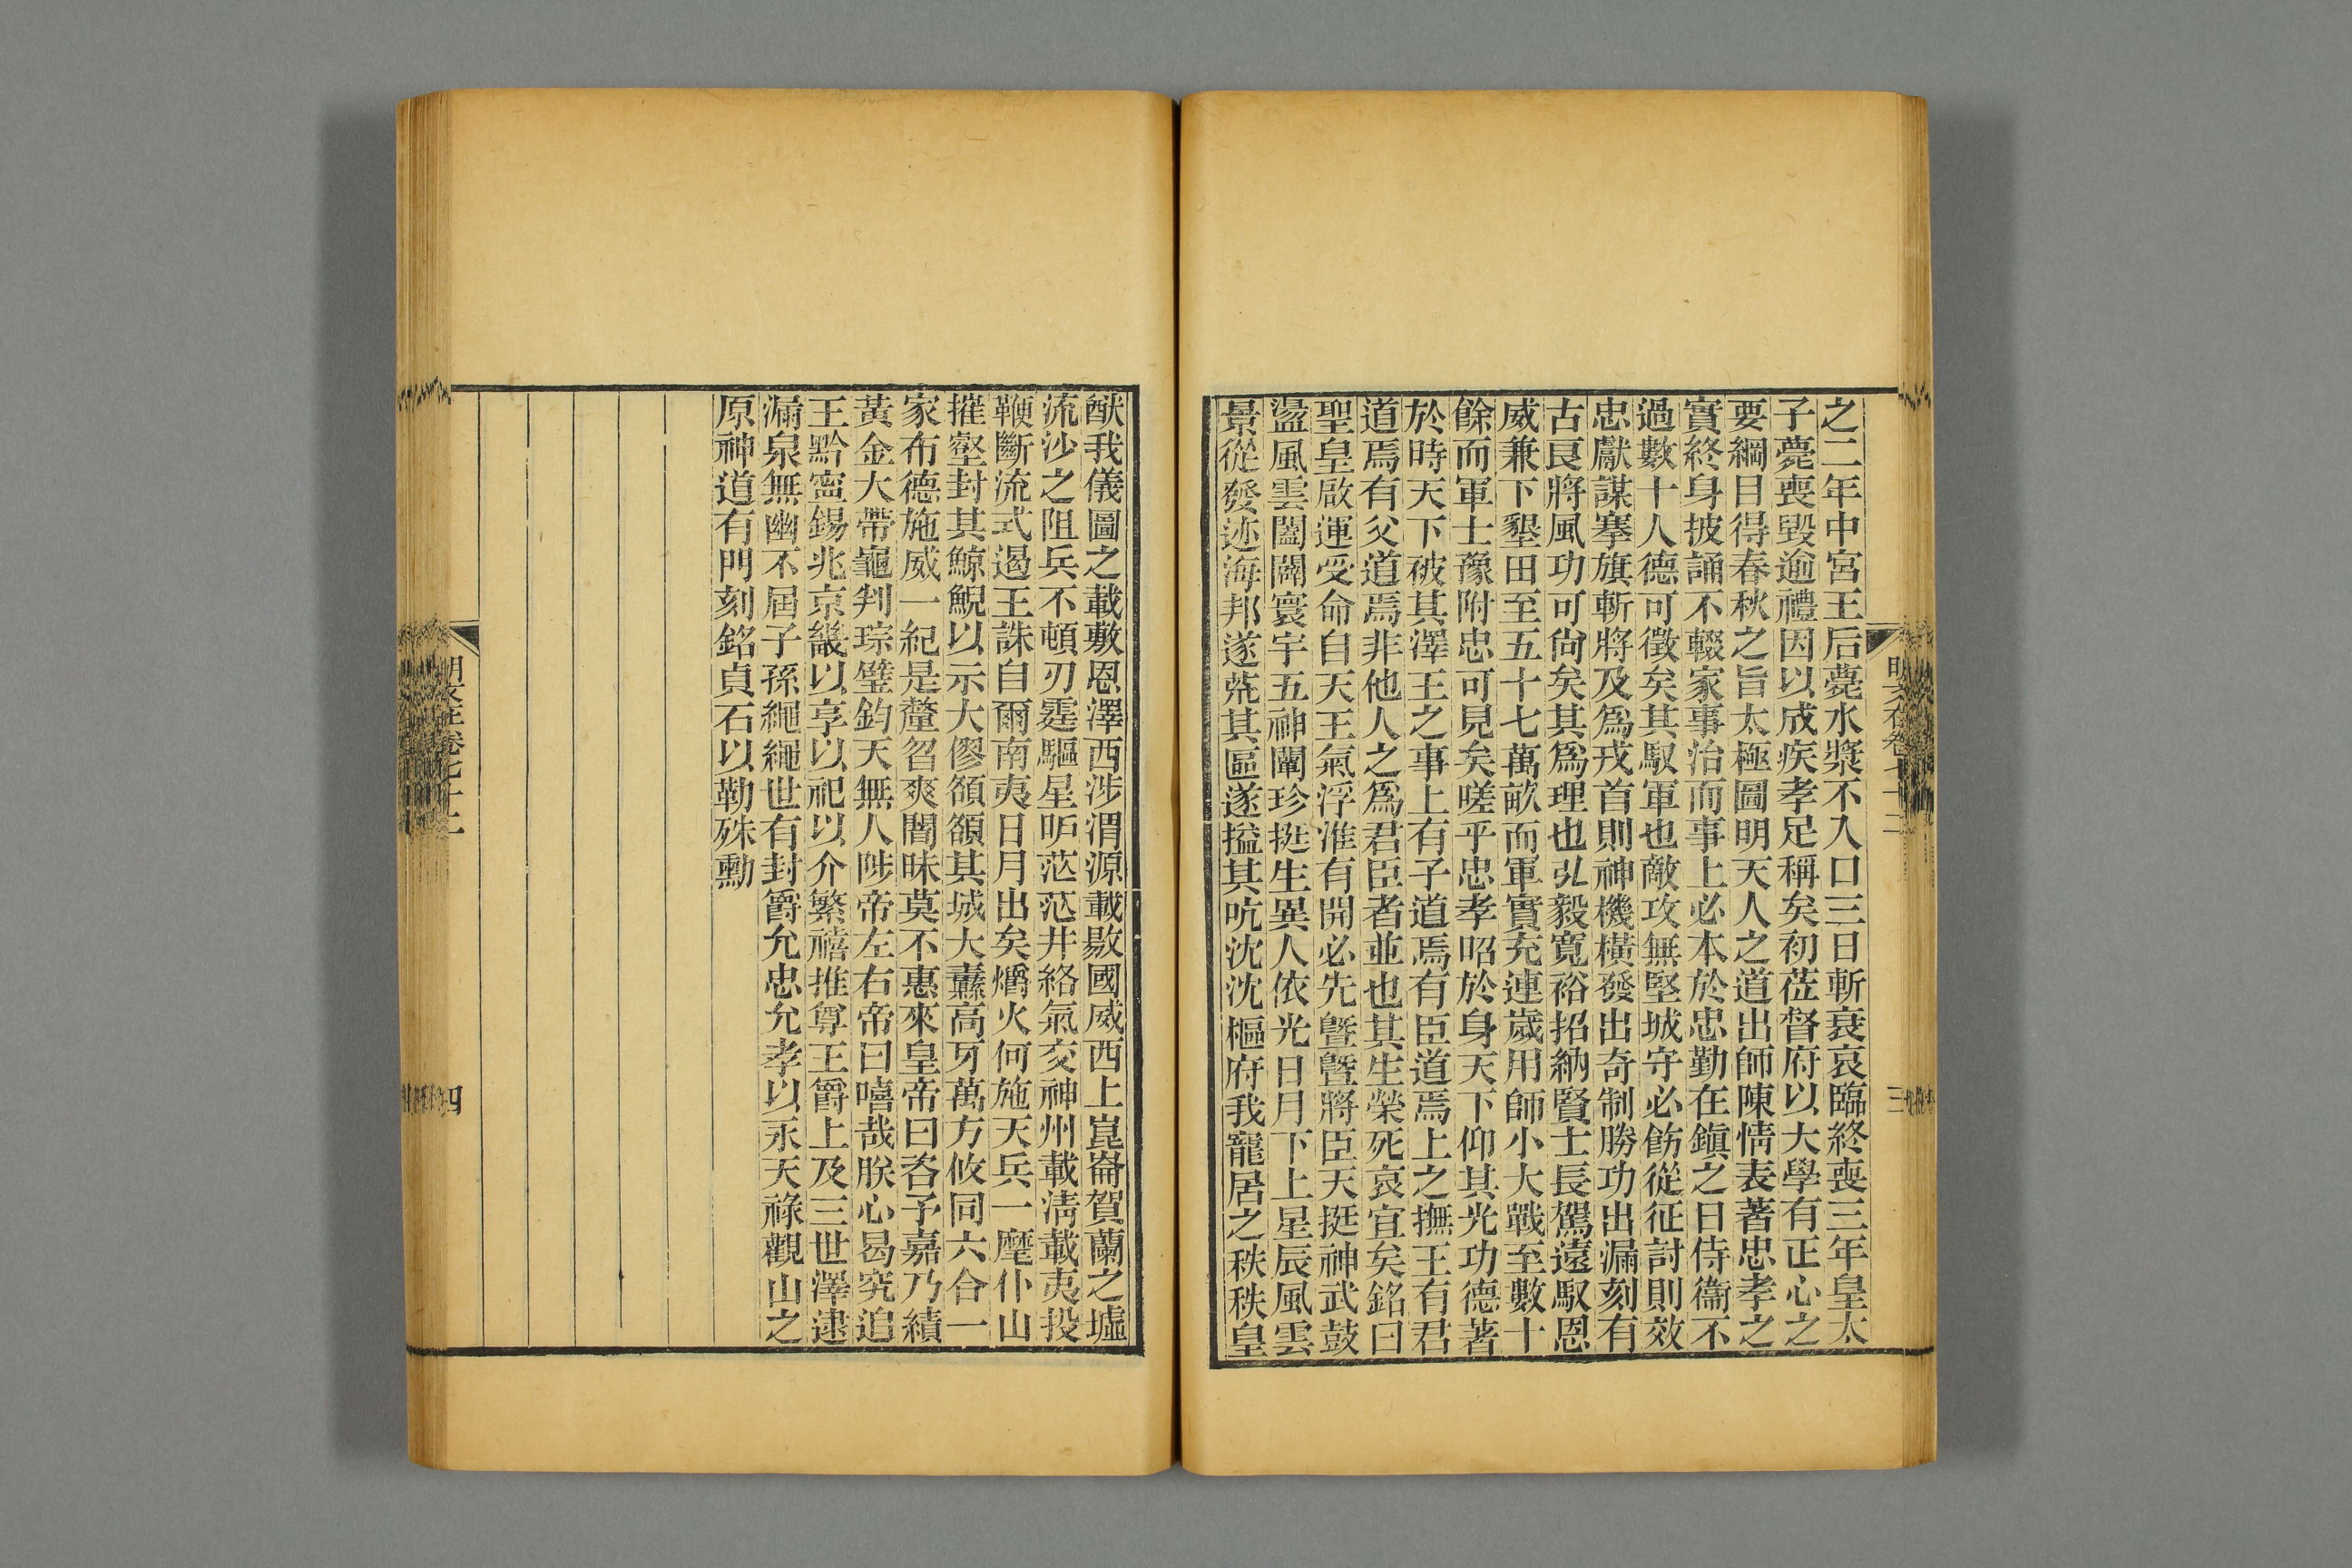 之二年中宮王后薨水漿不入口三日斬衰哀臨終喪三年皇太
子薨喪毀逾禮因以成疾孝足稱矣初莅督府以大學有正心之
要綱目得春秋之旨太極圖明天人之道出師陳情表著忠孝之
實終身披誦不輟家事治而事上必本於忠勤在鎮之日侍衞不
過數十人德可徵矣其馭軍也敵攻無堅城守必飭從征討則效
忠獻謀搴旗斬將及爲戎首則神機橫發出奇制勝功出漏刻有
古良將風功可尙矣其爲理也弘毅寬裕招納賢士長駕遠馭恩
威兼下墾田至五十七萬畝而軍實充連歲用師小大戰至數十
餘而軍士豫附忠可見矣嗟乎忠孝昭於身天下仰其光功德著
於時天下被其澤王之事上有子道焉有臣道焉上之撫王有君
道焉有父道焉非他人之爲君臣者並也其生榮死哀宜矣銘曰
聖皇啟運受命自天王氣浮淮有開必先曁曁將臣天挺神武鼓
盪風雲闔闢寰宇五神闡珍挺生異人依光日月下上星辰風雲
景從發迹海邦遂荒其區遂搤其吭沈沈樞府我寵居之秩秩皇
猷我儀圖之載敷恩澤西涉渭源載敭國威西上崑崙賀蘭之墟
流沙之阻兵不頓刃霆驅星昈茫茫井絡氣交神州載淸載夷投
鞭斷流式遏王誅自爾南夷日月出矣爝火何施天兵一麾仆山
摧壑封其鯨鯢以示大僇額額其城大纛高牙萬方攸同六合一
家布德施威一紀是釐曶爽闇昧莫不惠來皇帝曰咨予嘉乃績
黃金大帶龜判琮璧鈞天無人陟帝左右帝曰嘻哉朕心曷究追
王黔寧錫兆京畿以享以祀以介繁禧推尊王爵上及三世澤逮
漏泉無幽不屆子孫繩繩世有封爵允忠允孝以永天祿觀山之
原神道有門刻銘貞石以勒殊勳
明文在卷七十二
三
明文在卷七十二
四